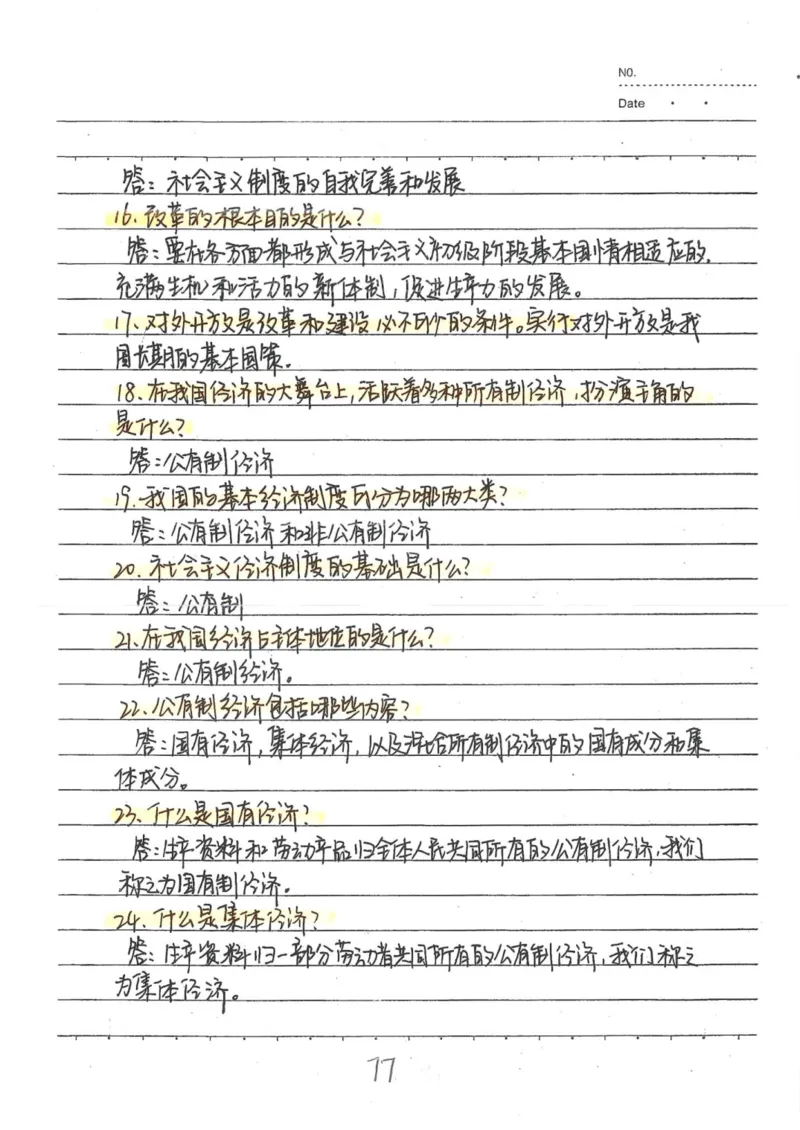 NO.
Date
答：社会主义制度的自我完善和发展
16、改革的根本目的是什么？
答：要在各方面都形成与社会主义初级阶段基本国情相适应的，
充满生机和活力的新体制，促进生产力的发展。
17、对外开放是改革和建设必不可少的条件。实行对外开放是我
国长期的基本国策。
18、在我国经济的大舞台上，活跃着多种所有制经济，扮演主角的
是什么？
答：公有制经济
19、我国的基本经济制度可分为哪两大类？
答：公有制经济和非公有制经济
20、社会主义经济制度的基础是什么？
答：公有制
21、在我国经济占主体地位的是什么？
答：公有制经济。
22、公有制经济包括哪些内容？
答：国有经济，集体经济，以及混合所有制经济中的国有成分和集
体成分。
23、什么是国有经济？
答：生产资料和劳动产品归全体人民共同所有的公有制经济，我们
称之为国有制经济。
24、什么是集体经济？
答：生产资料归一部分劳动者共同所有的公有制经济，我们称之
为集体经济。
77